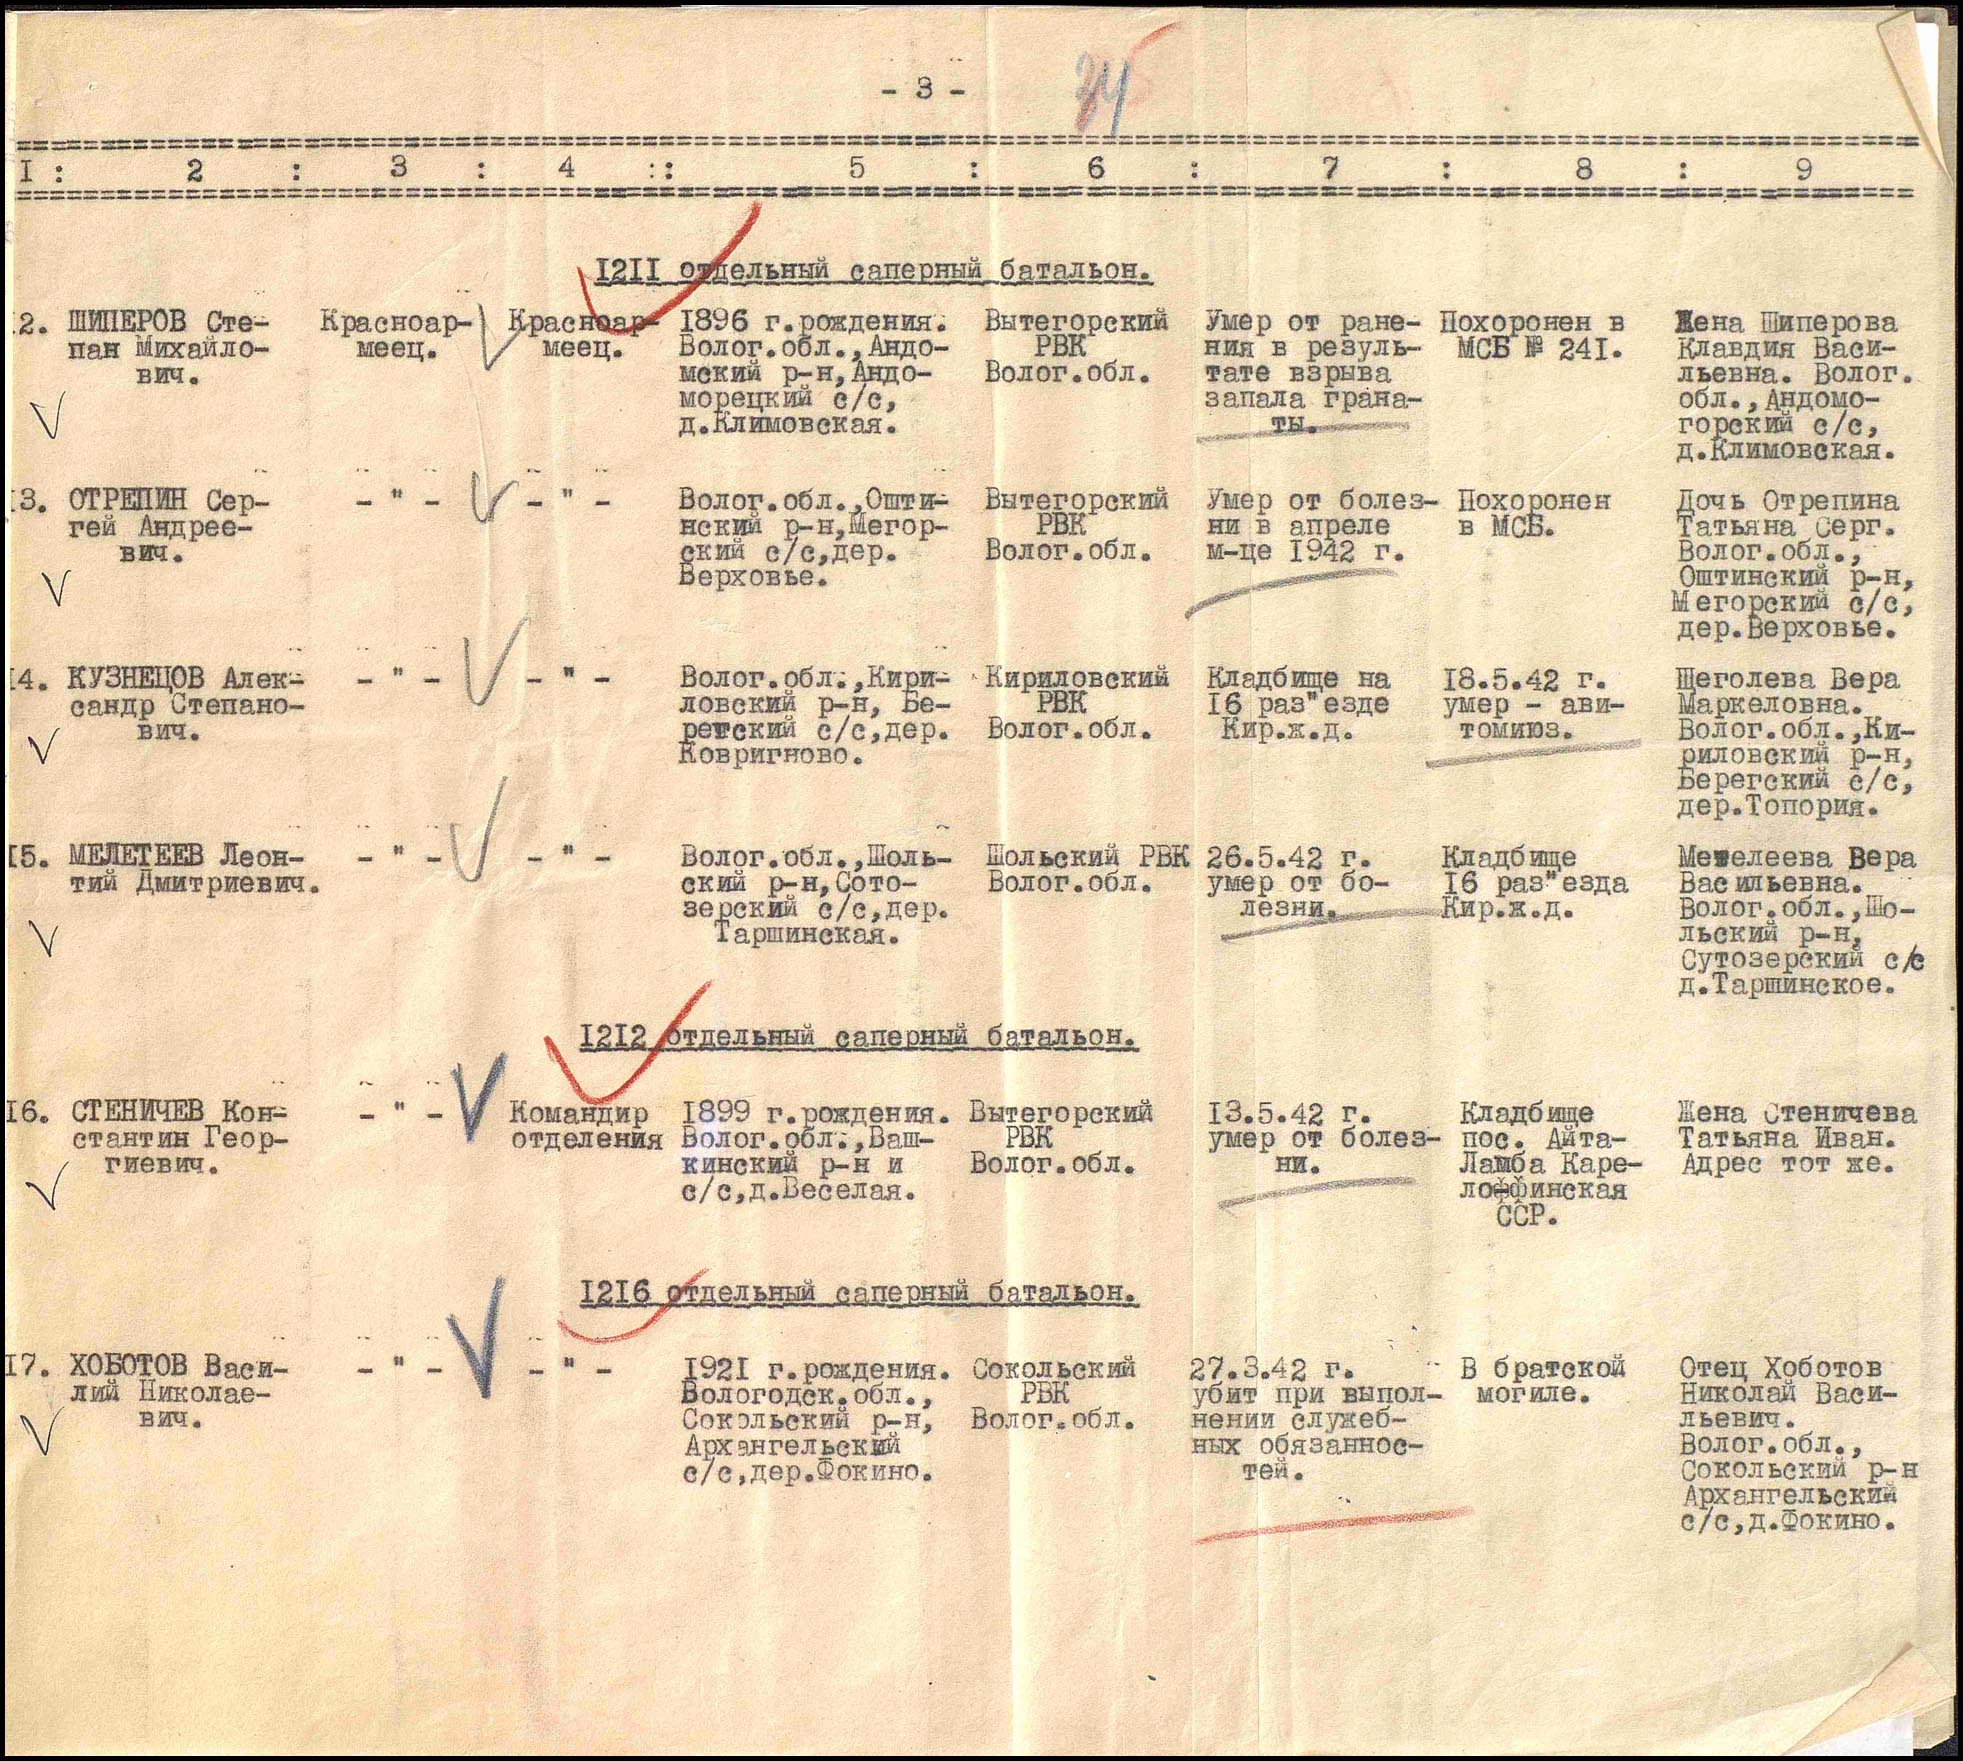 - 3 -
34
I : 2 : 3 : 4 :: 5 : 6 : 7 : 8 : 9
I2II отдельный саперный батальон.
I2. ШИПЕРОВ Сте-
пан Михайло-
вич.
Красноар-
меец.
Красноар-
меец.
I896 г.рождения.
Волог.обл.,Андо-
мский р-н,Андо-
морецкий с/с,
д.Климовская.
Вытегорский
РВК
Волог.обл.
Умер от ране-
ния в резуль-
тате взрыва
запала грана-
ты.
Похоронен в
МСБ № 24I.
Жена Шиперова
Клавдия Васи-
льевна. Волог.
обл.,Андомо-
горский с/с,
д.Климовская.
I3. ОТРЕПИН Сер-
гей Андрее-
вич.
- " -
- " -
Волог.обл.,Ошти-
нский р-н,Мегор-
ский с/с,дер.
Верховье.
Вытегорский
РВК
Волог.обл.
Умер от болез-
ни в апреле
м-це I942 г.
Похоронен
в МСБ.
Дочь Отрепина
Татьяна Серг.
Волог.обл.,
Оштинский р-н,
Мегорский с/с,
дер.Верховье.
I4. КУЗНЕЦОВ Алек-
сандр Степано-
вич.
- " -
- " -
Волог.обл.,Кири-
ловский р-н, Бе-
регский с/с,дер.
Ковригново.
Кириловский
РВК
Волог.обл.
Кладбище на
I6 раз"езде
Кир.ж.д.
I8.5.42 г.
умер - ави-
томиюз.
Щеголева Вера
Маркеловна.
Волог.обл.,Ки-
риловский р-н,
Берегский с/с,
дер.Топория.
I5. МЕЛЕТЕЕВ Леон-
тий Дмитриевич.
- " -
- " -
Волог.обл.,Шоль-
ский р-н,Сото-
зерский с/с,дер.
Таршинская.
Шольский РВК
Волог.обл.
26.5.42 г.
умер от бо-
лезни.
Кладбище
I6 раз"езда
Кир.ж.д.
Метелеева Вера
Васильевна.
Волог.обл.,Шо-
льский р-н,
Сутозерский с/с
д.Таршинское.
I2I2 отдельный саперный батальон.
I6. СТЕНИЧЕВ Кон-
стантин Геор-
гиевич.
- " -
Командир
отделения
I899 г.рождения.
Волог.обл.,Ваш-
кинский р-н и
с/с,д.Веселая.
Вытегорский
РВК
Волог.обл.
I3.5.42 г.
умер от болез-
ни.
Кладбище
пос. Айта-
Ламба Каре-
лоффинская
ССР.
Жена Стеничева
Татьяна Иван.
Адрес тот же.
I2I6 отдельный саперный батальон.
I7. ХОБОТОВ Васи-
лий Николае-
вич.
- " -
- " -
I92I г.рождения.
Вологодск.обл.,
Сокольский р-н,
Архангельский
с/с,дер.Фокино.
Сокольский
РВК
Волог.обл.
27.3.42 г.
убит при выпол-
нении служеб-
ных обязаннос-
тей.
В братской
могиле.
Отец Хоботов
Николай Васи-
льевич.
Волог.обл.,
Сокольский р-н
Архангельский
с/с,д.Фокино.